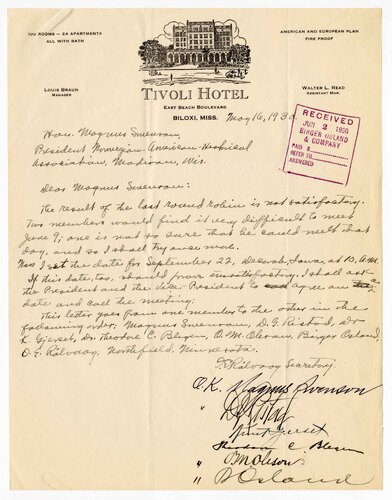 100 ROOMS — 24 APARTMENTS
ALL WITH BATH
AMERICAN AND EUROPEAN PLAN
FIRE PROOF
LOUIS BRAUN
MANAGER
WALTER L. READ
ASSISTANT MGR.
TIVOLI HOTEL
EAST BEACH BOULEVARD
BILOXI, MISS. May 16, 1930
RECEIVED
JUN 2 1930
BIRGER OSLAND
& COMPANY
PAID $
REFER TO
ANSWERED
Hon. Magnus Swenson,
President Norwegian-American Historical
Association, Madison, Wis.
Dear Magnus Swenson:
The result of the last round robin is not satisfactory.
Two members would find it very difficult to meet
June 9; one is not so sure that he could meet that
day, and so I shall try once more.
Now I set the date for September 22, Decorah, Iowa, at 10 A.M.
If this date, too, should prove unsatisfactory, I shall ask
the President and the Vice-President to agree on
date and call the meeting.
This letter goes from one member to the other in the
following order: Magnus Swenson, D. G. Ristad, Dr.
K. Gjerset, Dr. Theodore C. Blegen, O. M. Oleson, Birger Osland,
O. E. Rölvaag, Northfield, Minnesota.
Rölvaag Secretary.
O.K. Magnus Swenson
" D G Ristad
Knut Gjerset
Theodore C. Blegen
" O M Oleson
" B Osland